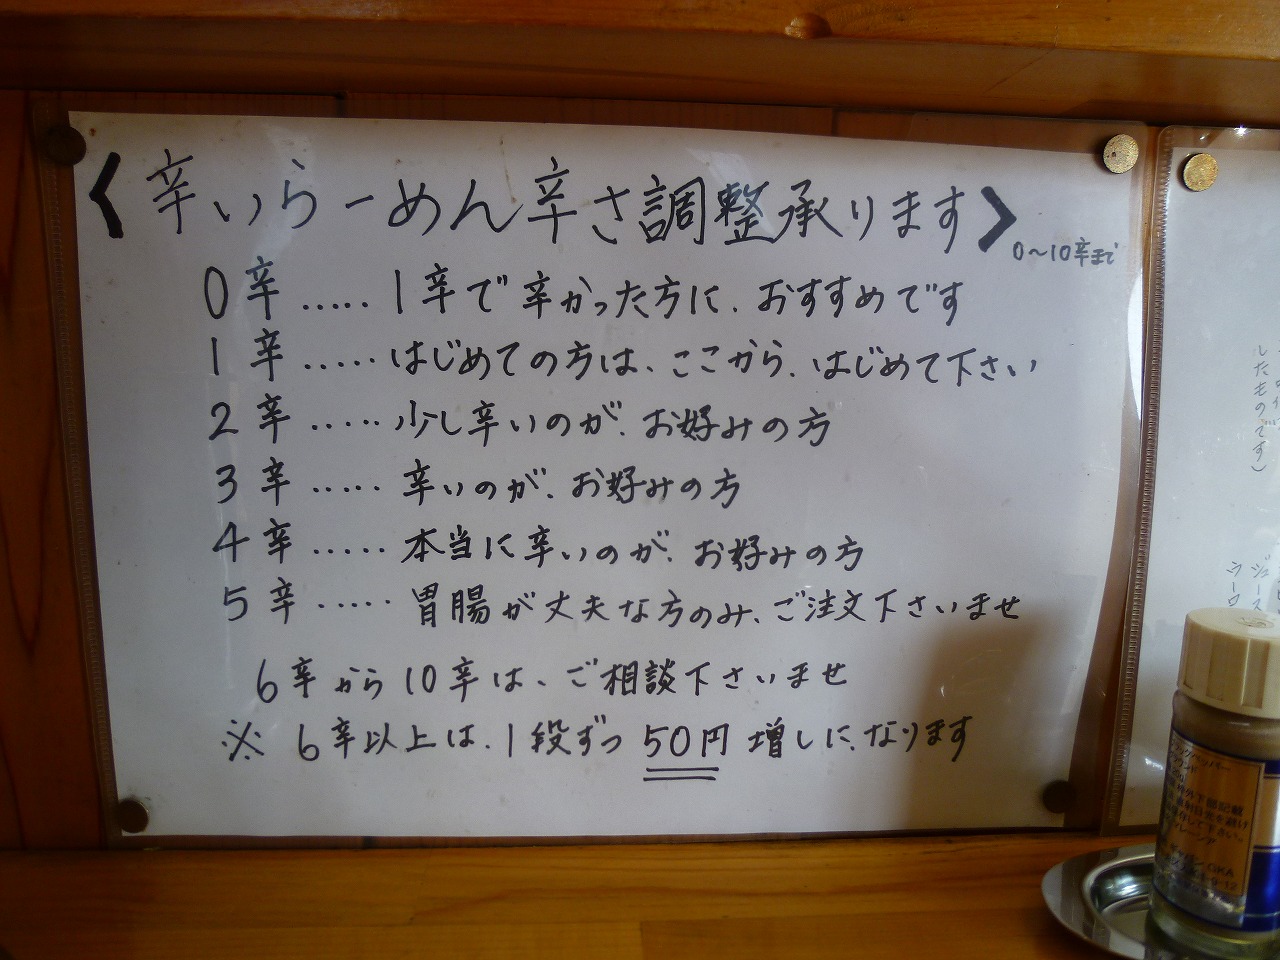 〈辛いらーめん辛さ調整承ります〉
0〜10辛まで
0辛.....1辛で辛かった方に、おすすめです
1辛.....はじめての方は、ここから、はじめて下さい
2辛.....少し辛いのが、お好みの方
3辛.....辛いのが、お好みの方
4辛.....本当に辛いのが、お好みの方
5辛.....胃腸が丈夫な方のみ、ご注文下さいませ
6辛から10辛は、ご相談下さいませ
※ 6辛以上は、1段ずつ 50円 増しに、なります
したものです)
ジュース
ウーロ